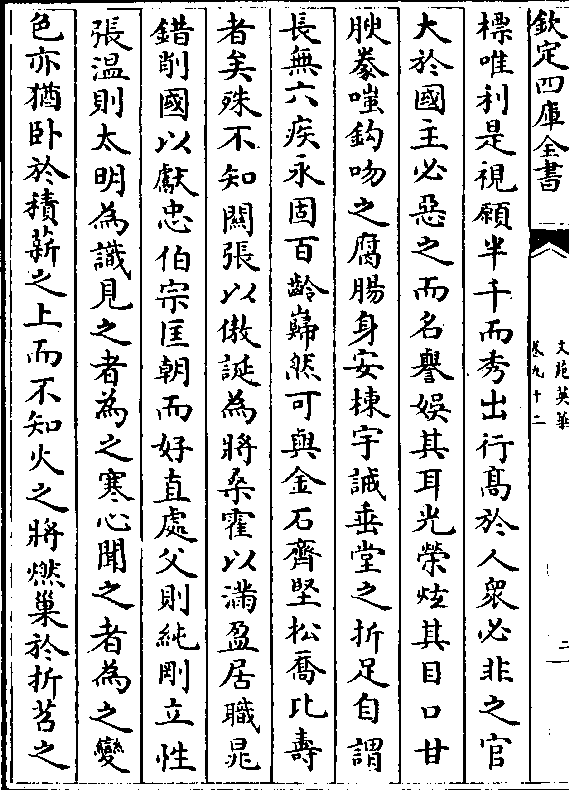 欽定四庫全書
文苑英華
卷九十二
三
標唯利是視願半千而秀出行髙於人衆必非之官
大於國主必惡之而名譽娯其耳光榮炫其目口甘
腴豢嗤鈎吻之腐腸身安棟宇誠垂堂之折足自謂
長無六疾永固百齡巋然可與金石齊堅松喬比壽
者矣殊不知闗張以傲誕為將桑霍以滿盈居職晁
錯削國以獻忠伯宗匡朝而好直處父則純剛立性
張温則太明為識見之者為之寒心聞之者為之變
色亦猶卧於積薪之上而不知火之將燃巢於折苕之